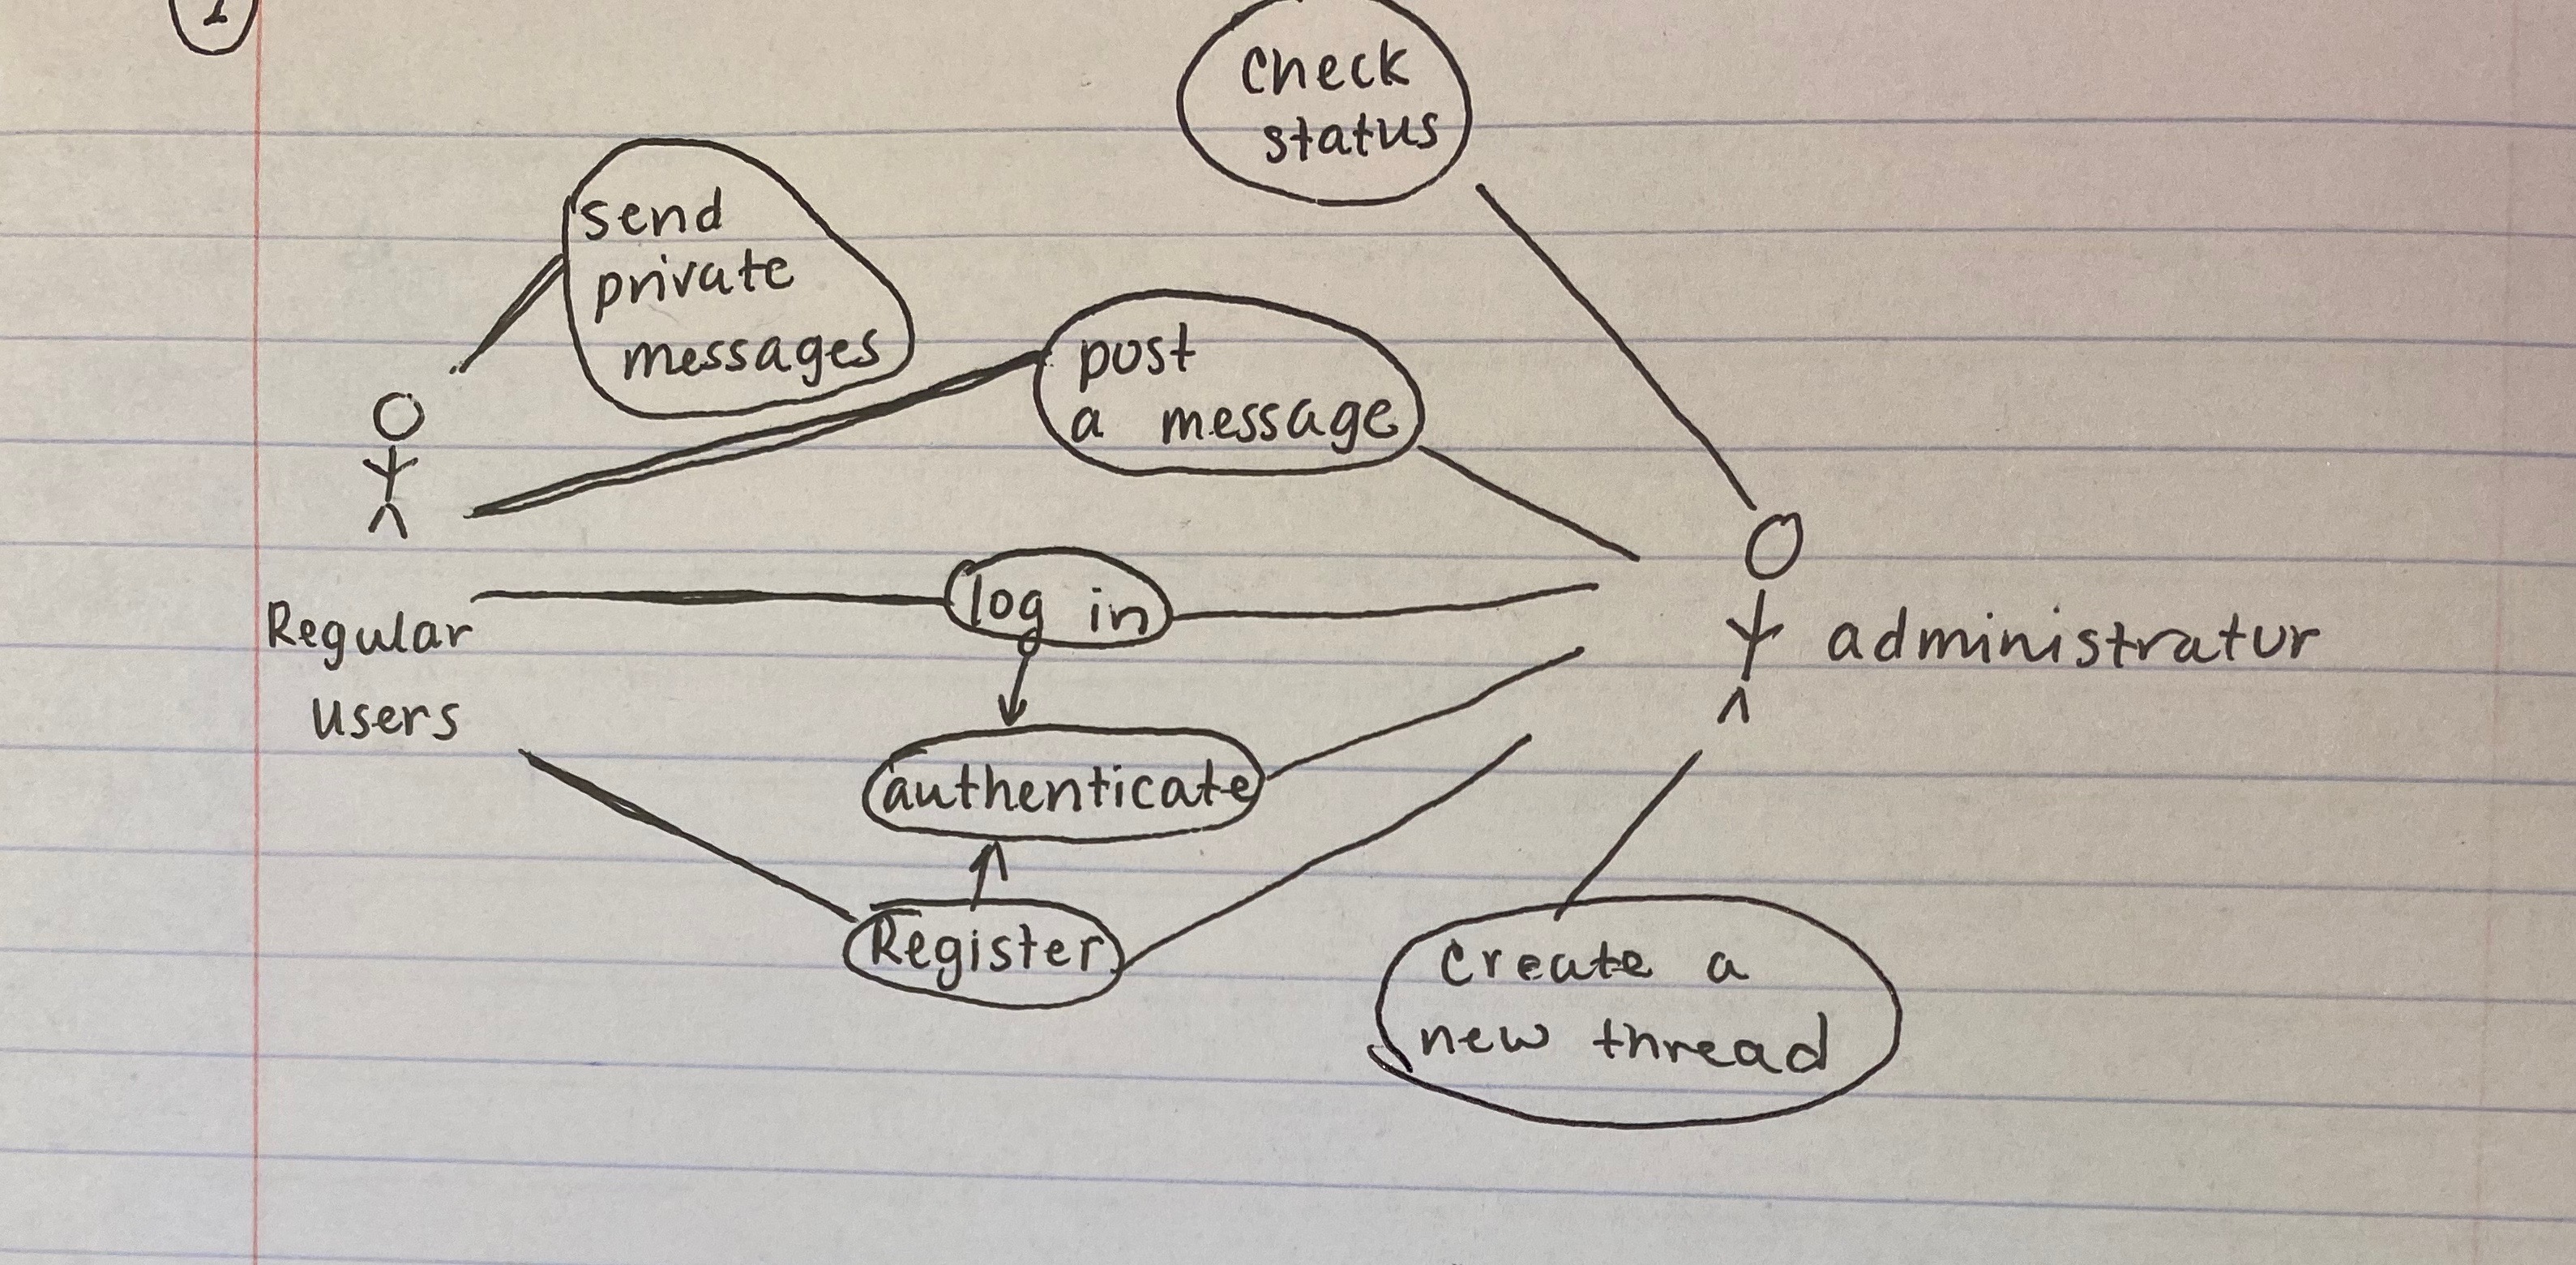 1
check
status
send
private
messages
post
a message
log in
Regular
users
administrator
authenticate
Register
create a
new thread